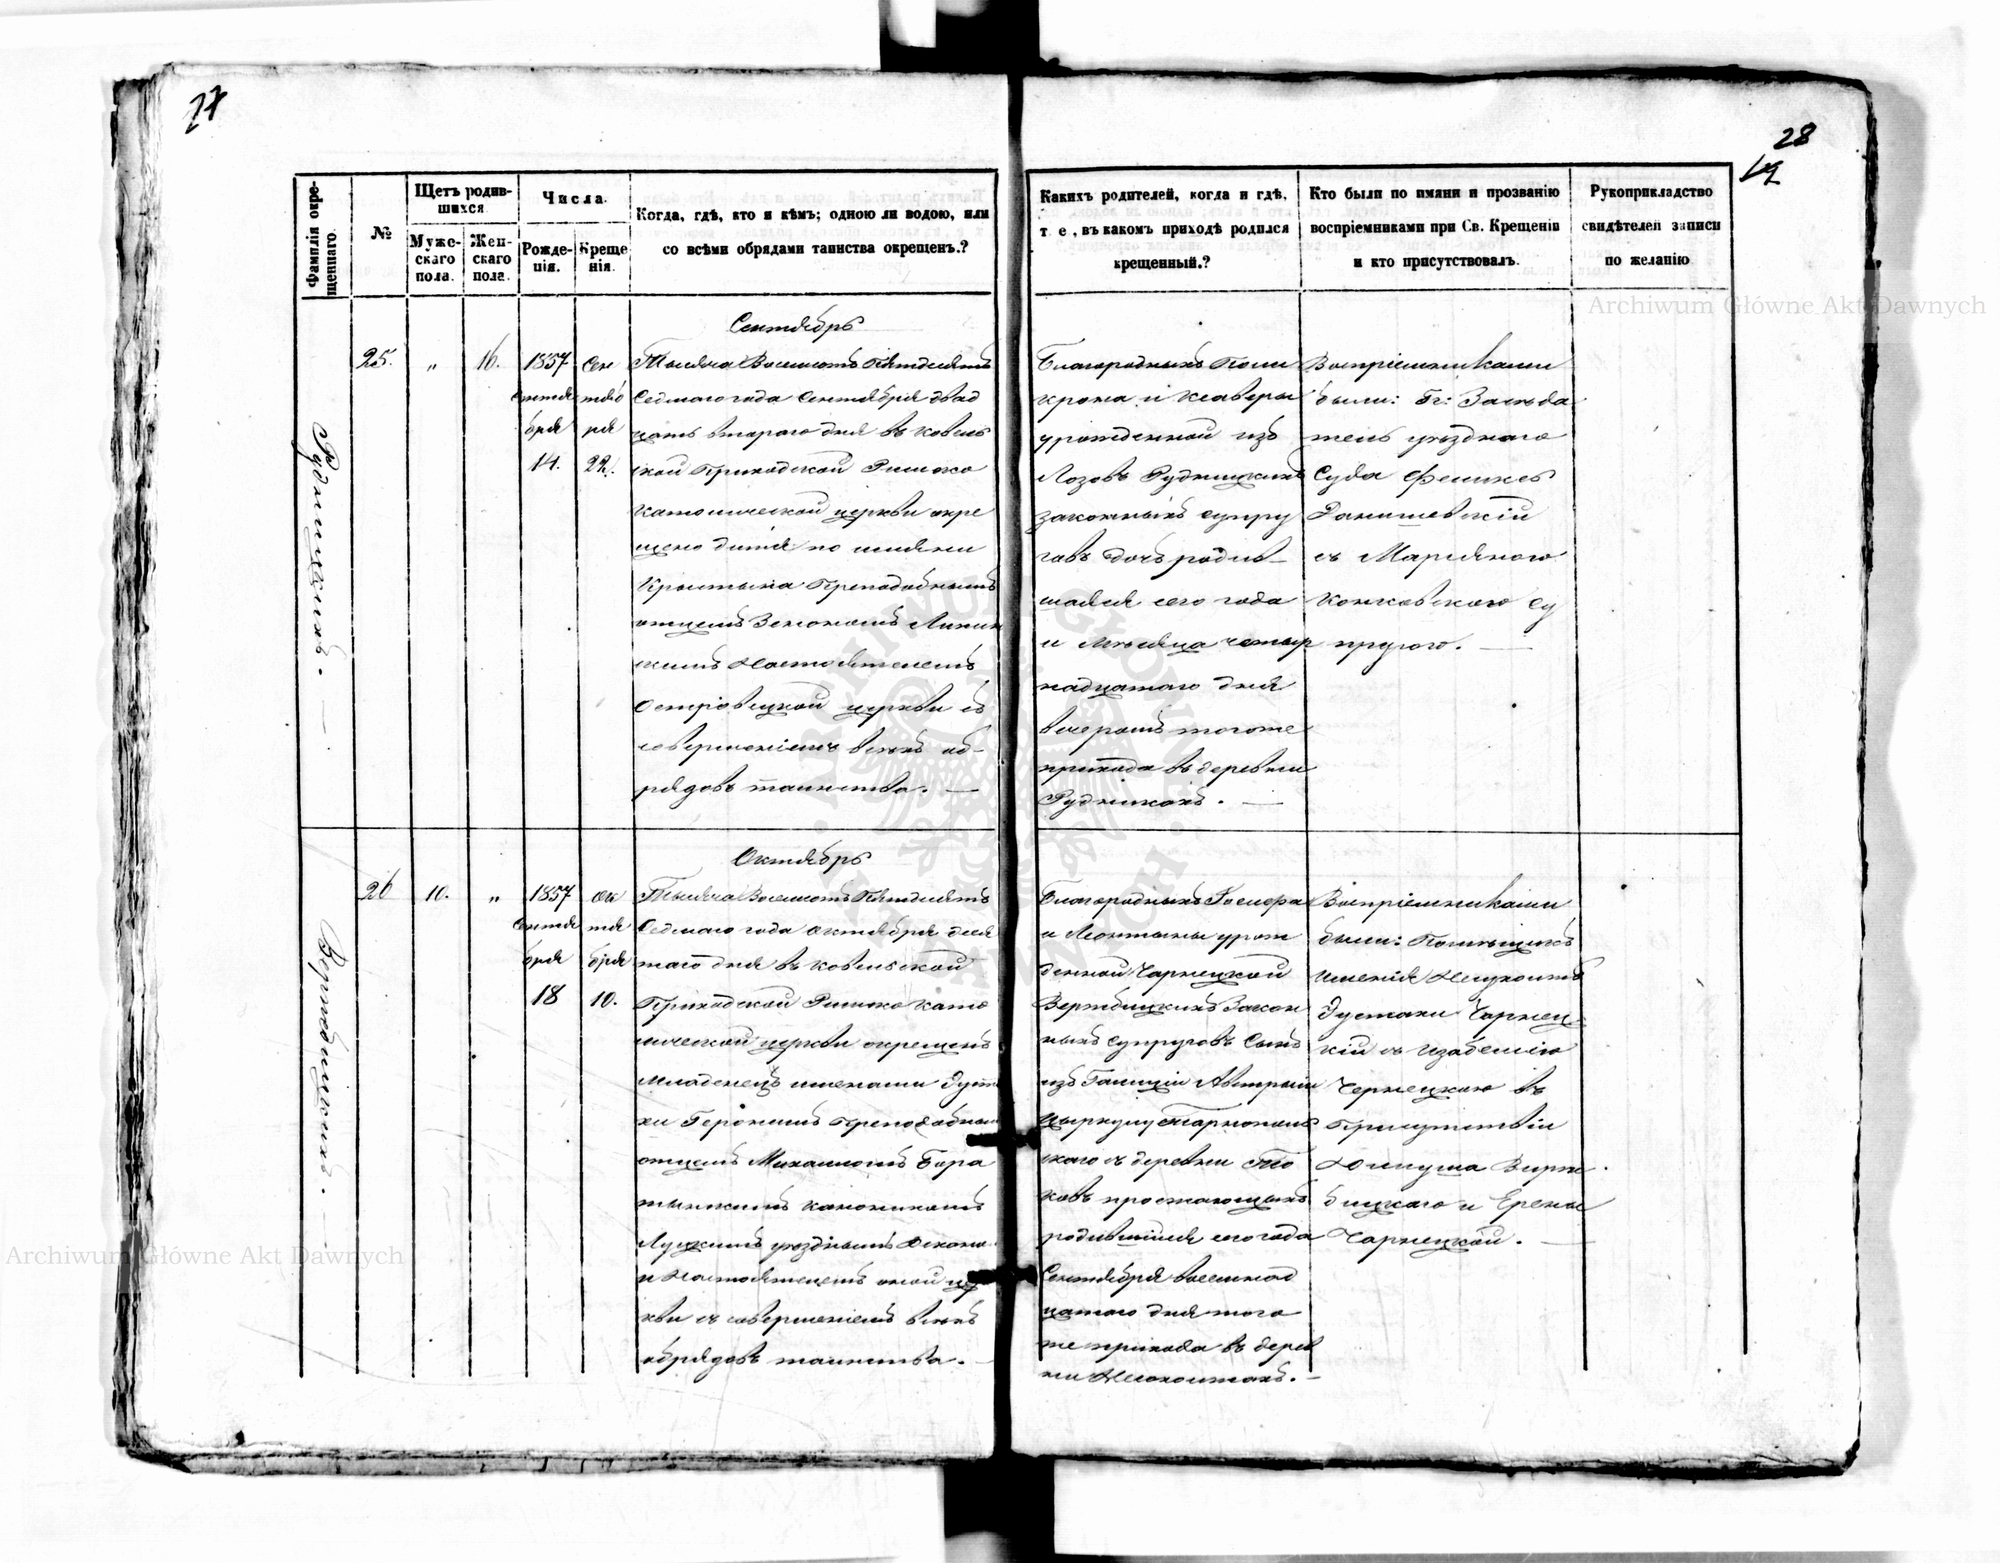 27
28
19
Фамилія окрещеннаго.
№
Щетъ родившихся
Мужескаго пола.
Женскаго пола.
Числа
Рожденія.
Крещенія.
Когда, гдѣ, кто и кѣмъ; одною ли водою, или
со всѣми обрядами таинства окрещенъ.?
Каких родителей, когда и гдѣ,
т. е, въ какомъ приходѣ родился
крещенный.?
Кто были по имяни и прозванію
воспріемниками при Св. Крещеніи
и кто присутствовалъ.
Рукоприкладство
свидѣтелей записи
по желанію
Archiwum Główne Akt Dawnych
Рудницкихъ. —
25.
„
16.
1857
Сентя
бря
14.
Сен
тяб
ря
22.
Сентябрь
Тысяча Восемсотъ Пятдесятъ
Седмаго года Сентября двад
цать втораго дня въ Ковель
ской Приходской Римско
Католической церкви окре
щено дитя по имяни
Крыстына Преподобнымъ
отцемъ Зенономъ
Настоятелемъ
церкви съ
совершеніемъ всѣхъ об-
рядовъ таинства. —
Благородныхъ Поли
крона и Ксаверы
урожденной изъ
Лозовъ Рудницкихъ
законныхъ супру
говъ дочь родив-
шаяся сего года
и мѣсяца четыр
надцатаго дня
тогоже
прихода въ деревни
Рудникахъ. —
Воспріемниками
были: Бл: Засѣда
тель уѣзднаго
Суда Феликсъ
съ Маріяною
су
пругою. —
Вержбицкихъ. —
26
10.
„
1857
Сентя
бря
18
Ок
тя
бря
10.
Октябрь
Тысяча Восемсотъ Пятдесятъ
Седмаго года Октября деся
таго дня въ Ковельской
Приходской Римско Като
лической церкви окрещенъ
Младенецъ именами Эуста
хи Геронимъ Преподобнымъ
отцемъ Михаиломъ Бара
каноникомъ
Луцкимъ уѣзднымъ Декано
и Настоятелемъ оной цер
кви съ совершеніемъ всѣхъ
обрядовъ таинства. —
Благородныхъ Іосифа
и Леонтыны урож
денной Чарнецкой
Вержбицкихъ Закон
ныхъ супруговъ Сынъ
изъ Галиціи Австрыи
цыркулу Тарнополь
скаго съ деревни
родившійся сего года
Сентября восемнад
цатаго дня того
же прихода въ дерев
ни
Воспріемниками
были: Помѣщикъ
имѣнія
Эустахи Чарнец
кій съ Изабеллію
Чернецкою въ
Присутствіи
Юліуша Верж
бицкаго и Ерены
Чарнецкой. —
Archiwum Główne Akt Dawnych